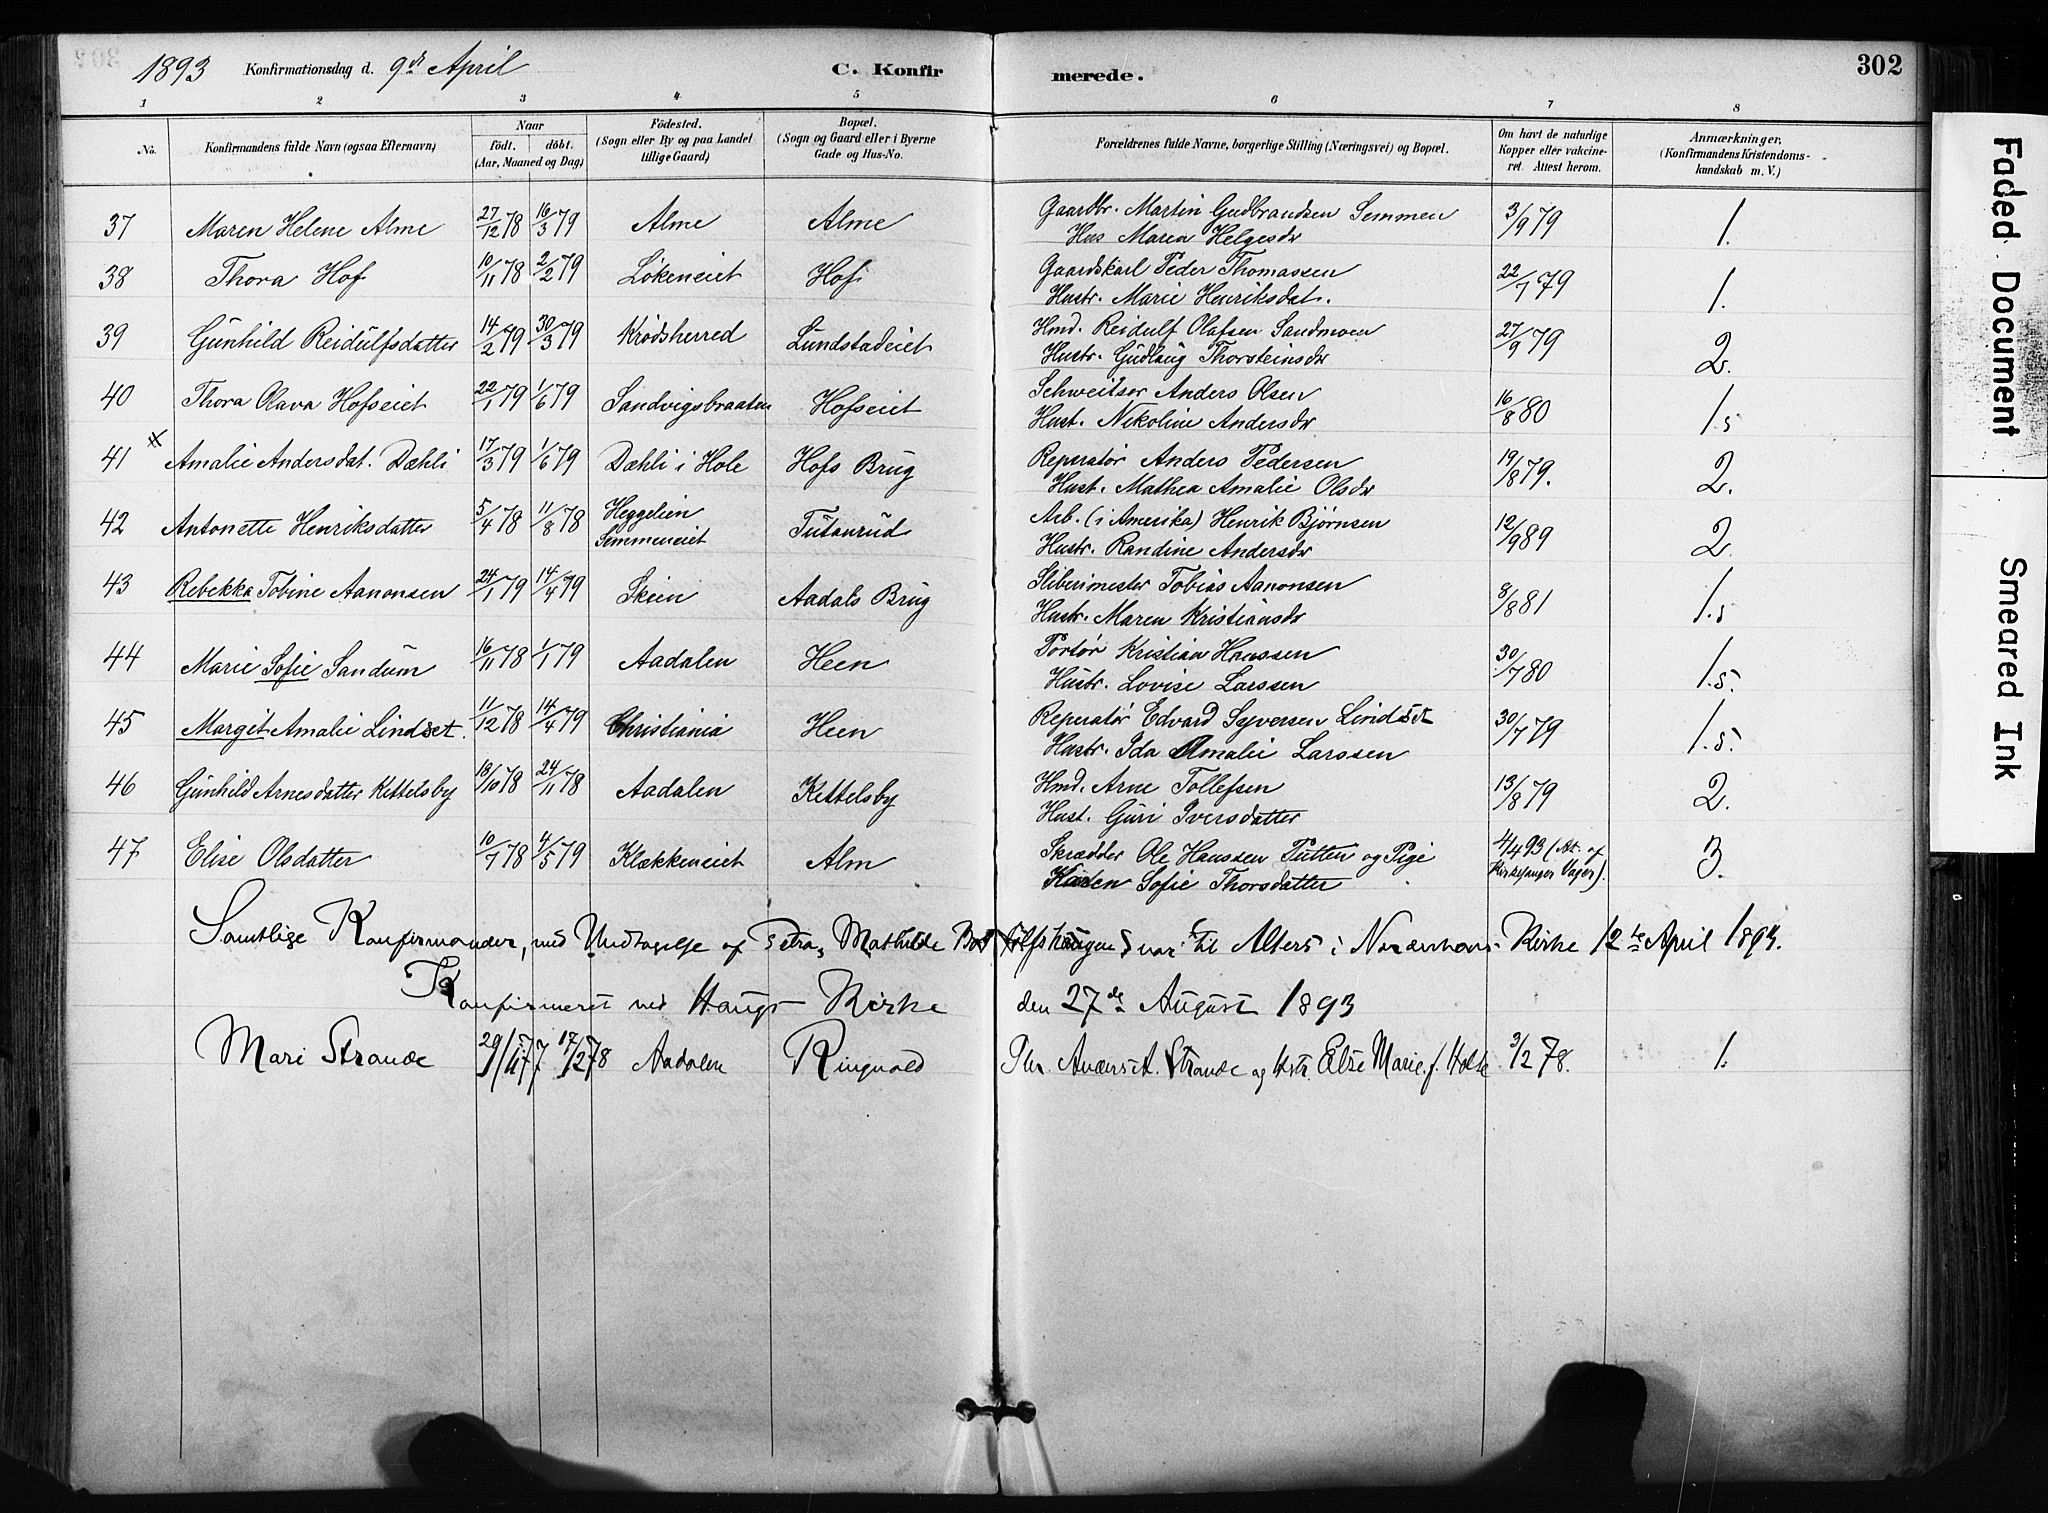 302
1893 Konfirmationsdag d. 9de April C. Konfirmerede.
1 2 3 4 5 6 7 8
No. Konfirmandens fulde Navn (ogsaa Efternavn) Naar Födt. döbt. (Aar, Maaned og Dag) Födested. (Sogn eller By og paa Landet tillige Gaard) Bopæl. (Sogn og Gaard eller i Byerne Gade og Hus-No. Forældrenes fulde Navne, borgerlige Stilling (Næringsvei) og Bopæl. Om havt de naturlige Kopper eller vakcineret. Attest herom. Anmærkninger, (Konfirmandens Kristendomskundskab m. V.)
37 Maren Helene Alme 27/12 78 16/3 79 Alme Alme Gaardbr. Martin Gudbrandsen Semmen 3/9 79 1.
Hus Maren Helgesdr
38 Thora Hof 10/11 78 2/2 79 Løkeneiet Hof Gaardskarl Peder Thomassen 22/7 79 1.
Hustr. Marie Henriksdat.
39 Gunhild Reidulfsdatter 14/2 79 30/3 79 Krødsherred Lundstadeiet Hmd. Reidulf Olafsen Sandmoen 27/9 79 2.
Hustr. Gudlaug Thorsteinsdr
40 Thora Olava Hofseiet 22/1 79 1/6 79 Sandvigsbraaten Hofseiet Schweitser Anders Olsen 16/8 80 1.5
Hust. Nikoline Andersdr
41 Amalie Andersdat. Dæhli 17/3 79 1/6 79 Dæhli i Hole Hofs Brug Reperatør Anders Pedersen 19/8 79. 2.
Hust. Mathea Amalie Olsdr
42 Antonette Henriksdatter 5/4 78 11/8 78 Heggelien Semmeneiet Tutanrud Arb. (i Amerika) Henrik Bjørnsen 12/9 89 2.
Hustr. Randine Andersdr
43 Rebekka Tobine Aanonsen 24/1 79 14/4 79 Skien Aadals Brug Sliberimester Tobias Aanonsen 8/8 81 1.5
Hustr. Maren Kristiansdr
44 Marie Sofie Sandum 16/11 78 1/1 79 Aadalen Heen Portør Kristian Hanssen 30/7 80 1.5.
Hustr. Lovise Larssen
45 Margit Amalie Lindset. 11/12 78 14/4 79 Christiania Heen Reperatør Edvard Syversen Lindset 30/7 79 1.5.
Hustr. Ida Amalie Larssen
46 Gunhild Arnesdatter Kettelsby 18/10 78 24/11 78 Aadalen Kettelsby Hmd. Arne Tollefsen 13/8 79 2.
Hust. Guri Iversdatter
47 Elise Olsdatter 10/7 78 4/5 79 Klækkeneiet Alm Skrædder Ole Hanssen Putten og Pige 4/4 93 (At. af Kirkesanger Vager). 3.
Karen Sofie Thorsdatter
Samtlige Konfirmander, med Undtagelse af Petra Mathilde var til Alters i Norderhovs Kirke 12te April 1893.
Konfirmeret ved Haugs Kirke den 27de August 1893
Mari Strande 29/11 77 17/2 78 Aadalen Ringvold Anders A. Strande og Hstr. Else Marie f. 3/2 78. 1.
Faded Document
Smeared Ink